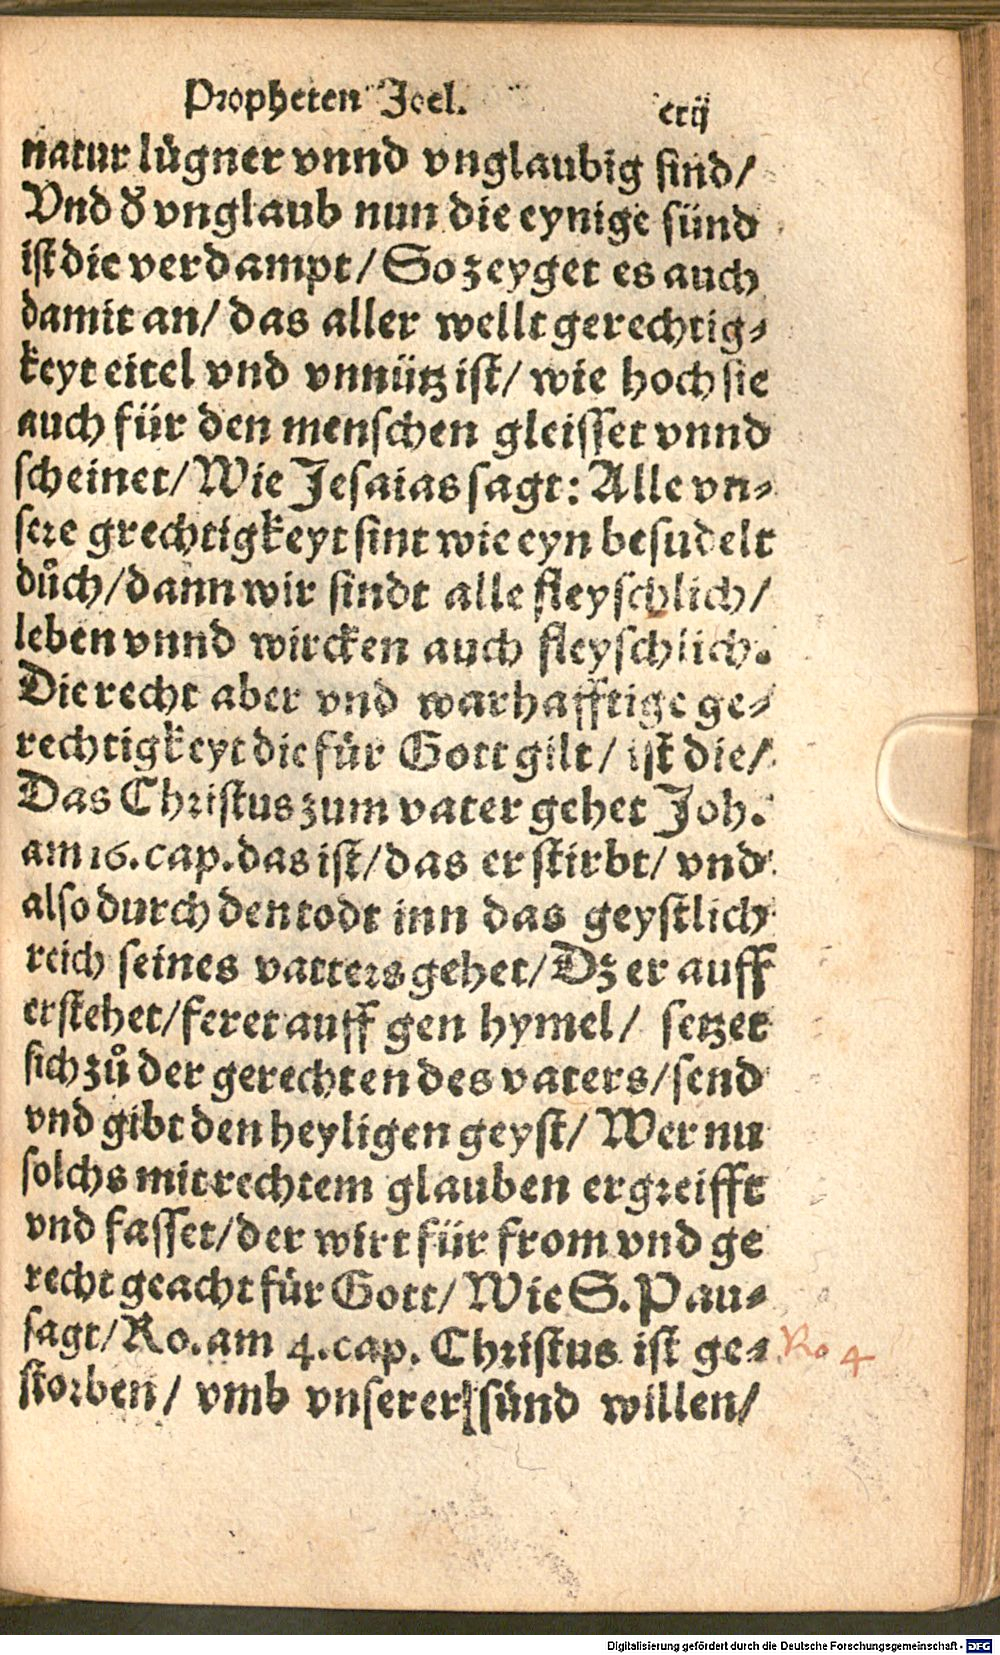 Propheten Joel. crij
natur lügner vnnd vnglaubig sind/
Vnd d' vnglaub nun die eynige sünd
ist die verdampt/ So zeyget es auch
damit an/ das aller wellt gerechtig⸗
keyt eitel vnd vnnütz ist/ wie hoch sie
auch für den menschen gleisset vnnd
scheinet/ Wie Jesaias sagt: Alle vn⸗
sere grechtigkeyt sint wie eyn besudelt
důch/ dann wir sindt alle fleyschlich/
leben vnnd wircken auch fleyschlich.
Die recht aber vnd warhafftige ge⸗
rechtigkeyt die für Gott gilt/ ist die/
Das Christus zum vater gehet Joh.
am 16. cap. das ist/ das er stirbt/ vnd
also durch den todt inn das geystlich
reich seines vatters gehet/ Dz er auff
erstehet/ feret auff gen hymel/ setzet
sich zů der gerechten des vaters/ send
vnd gibt den heyligen geyst/ Wer nu
solchs mit rechtem glauben ergreifft
vnd fasset/ der wirt für from vnd ge
recht geacht für Gott/ Wie S. Pau⸗
sagt/ Ro. am 4. cap. Christus ist ge⸗ Ro 4
storben/ vmb vnserer sünd willen/
Digitalisierung gefördert durch die Deutsche Forschungsgemeinschaft - DFG